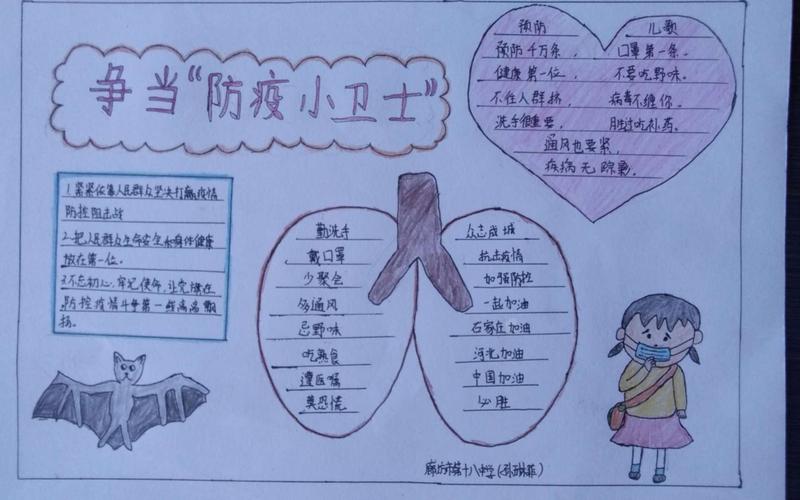 争当“防疫小卫士”
预防 儿歌
预防千万条， 口罩第一条。
健康第一位， 不要吃野味。
不往人群挤， 病毒不缠你。
洗手很重要， 胜过吃补药。
通风也要紧，
疾病无踪影。
1.紧紧依靠人民群众坚决打赢疫情
防控阻击战
2.把人民群众生命安全和身体健康
放在第一位。
3.不忘初心，牢记使命，让党旗在
防控疫情斗争第一线高高飘
扬。
勤洗手
戴口罩
少聚会
多通风
忌野味
吃熟食
遵医嘱
莫恐慌
众志成城
抗击疫情
加强防控
一起加油
石家庄加油
河北加油
中国加油
必胜
廊坊市第十八中学